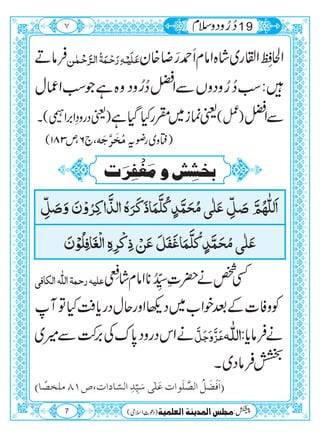 19 دُرُود وسلام
٧
الحافِظ القاری شاہ امام اَحمد رَضا خان عَلَيْهِ رَحْمَةُ الرَّحْمٰن فرماتے
ہیں: سب دُرُودوں سے اَفضل دُرُود وہ ہے جو سب اعمال
سے افضل (عمل) یعنی نماز میں مقرر کیا گیا ہے (یعنی درودِ ابراہیمی)۔
(فتاوی رضویہ مُخَرَّجَہ، ج٦ ص١٨٣)
بخشِش و مَغْفِرَت
اَللّٰهُمَّ صَلِّ عَلٰى مُحَمَّدٍ كُلَّمَا ذَكَرَهُ الذَّاكِرُوْنَ وَصَلِّ
عَلٰى مُحَمَّدٍ كُلَّمَا غَفَلَ عَنْ ذِكْرِهِ الْغَافِلُوْنَ
کسی شخص نے حضرتِ سیِّدُنا امام شافعی علیه رحمة الله الکافی
کو وفات کے بعد خواب میں دیکھا اور حال دریافت کیا تو آپ
نے فرمایا: اللّٰه عَزَّوَجَلَّ نے اس درودِ پاک کی برکت سے میری
بخشش فرمادی۔
(اَفْضَلُ الصَّلَوات عَلٰى سَیِّدِ السّادات، ص ٨١ ملخصًا)
7
پیشکش: مجلس المدينة العلمية (دعوتِ اسلامی)